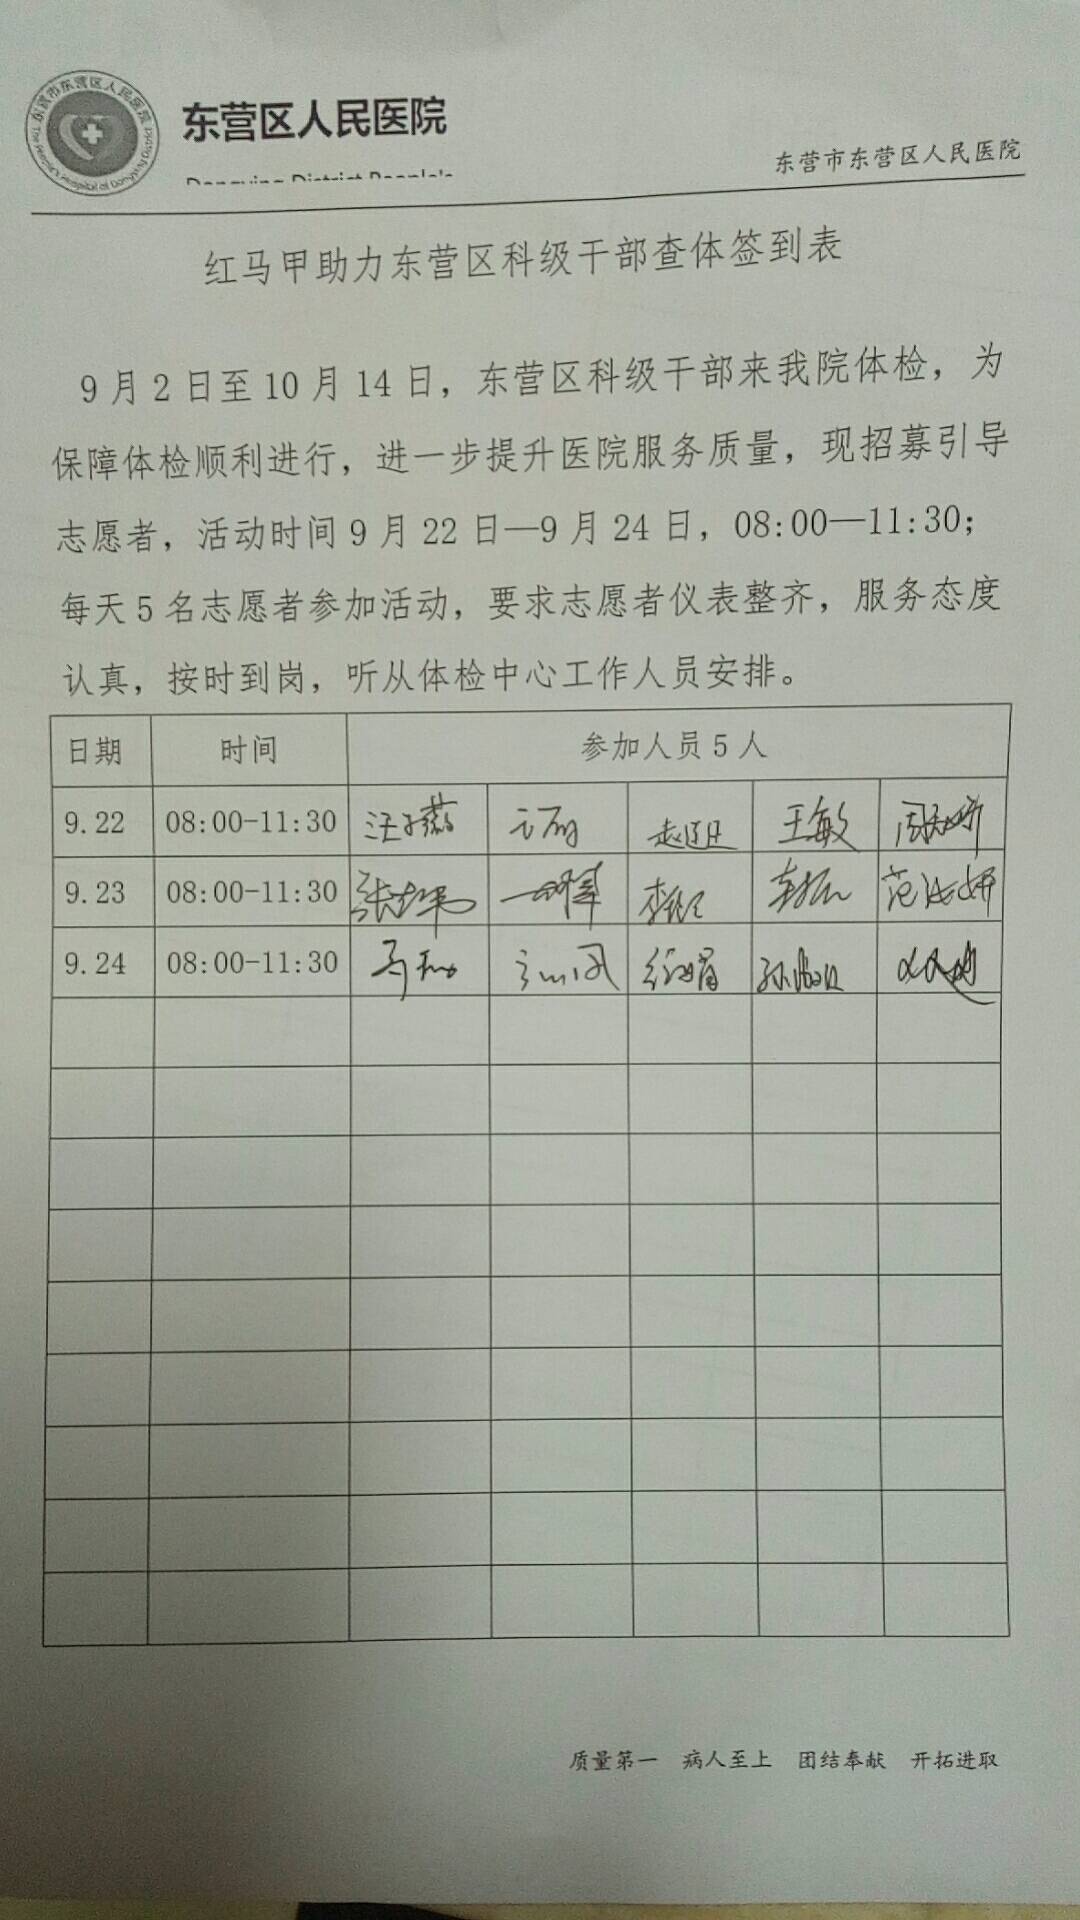 东营市东营区人民医院
东营区人民医院
东营市东营区人民医院
红马甲助力东营区科级干部查体签到表
9月2日至10月14日，东营区科级干部来我院体检，为
保障体检顺利进行，进一步提升医院服务质量，现招募引导
志愿者，活动时间9月22日—9月24日，08:00—11:30；
每天5名志愿者参加活动，要求志愿者仪表整齐，服务态度
认真，按时到岗，听从体检中心工作人员安排。
日期 时间 参加人员5人
9.22 08:00-11:30 王敏
9.23 08:00-11:30
9.24 08:00-11:30
质量第一 病人至上 团结奉献 开拓进取